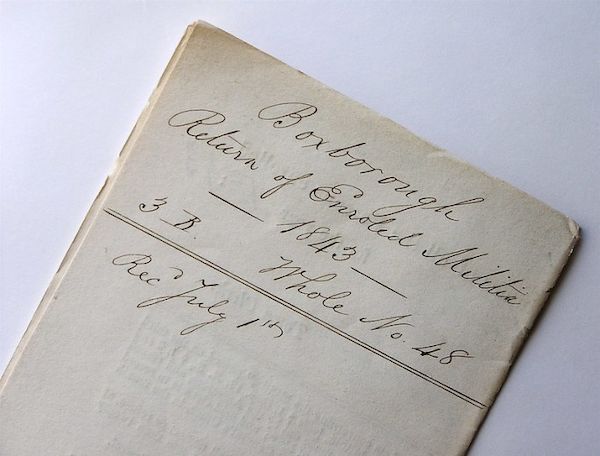 Boxborough
Return of Enroled Militia
— 1843 —
3 B. Whole No. 48
Recd July 1st